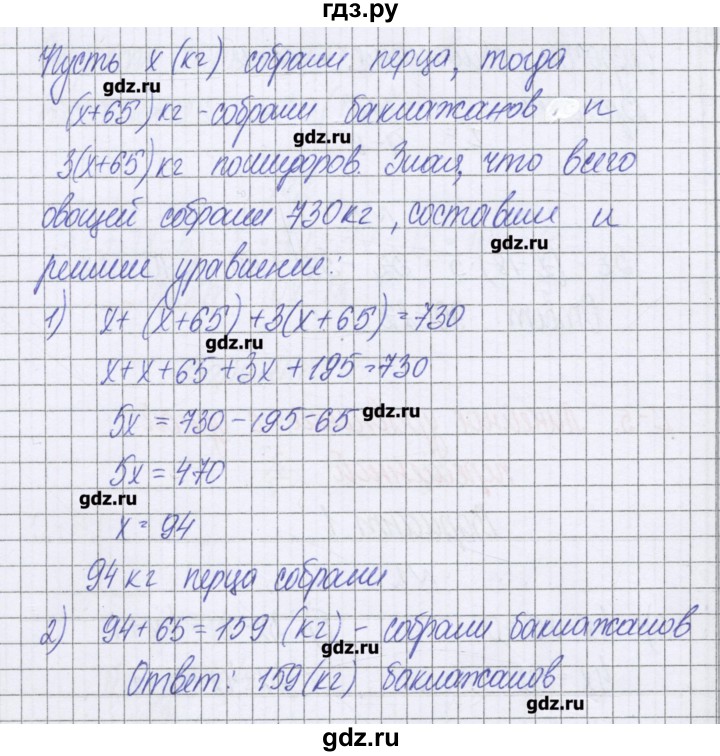 гдз.ру
Пусть х (кг) собрали перца, тогда
gdz.ru
(х+65) кг - собрали баклажанов и
gdz.ru
3(х+65) кг помидоров. Зная, что всего
овощей собрали 730 кг, составим и
gdz.ru
решим уравнение:
1) х + (х+65) + 3(х+65) = 730
gdz.ru
х+х+65+3х+195=730
5х = 730-195-65 gdz.ru
5х = 470
gdz.ru
х = 94
94 кг перца собрали
2) 94+65=159 (кг) - собрали баклажанов
gdz.ru
Ответ: 159 (кг) баклажанов
gdz.ru
gdz.ru